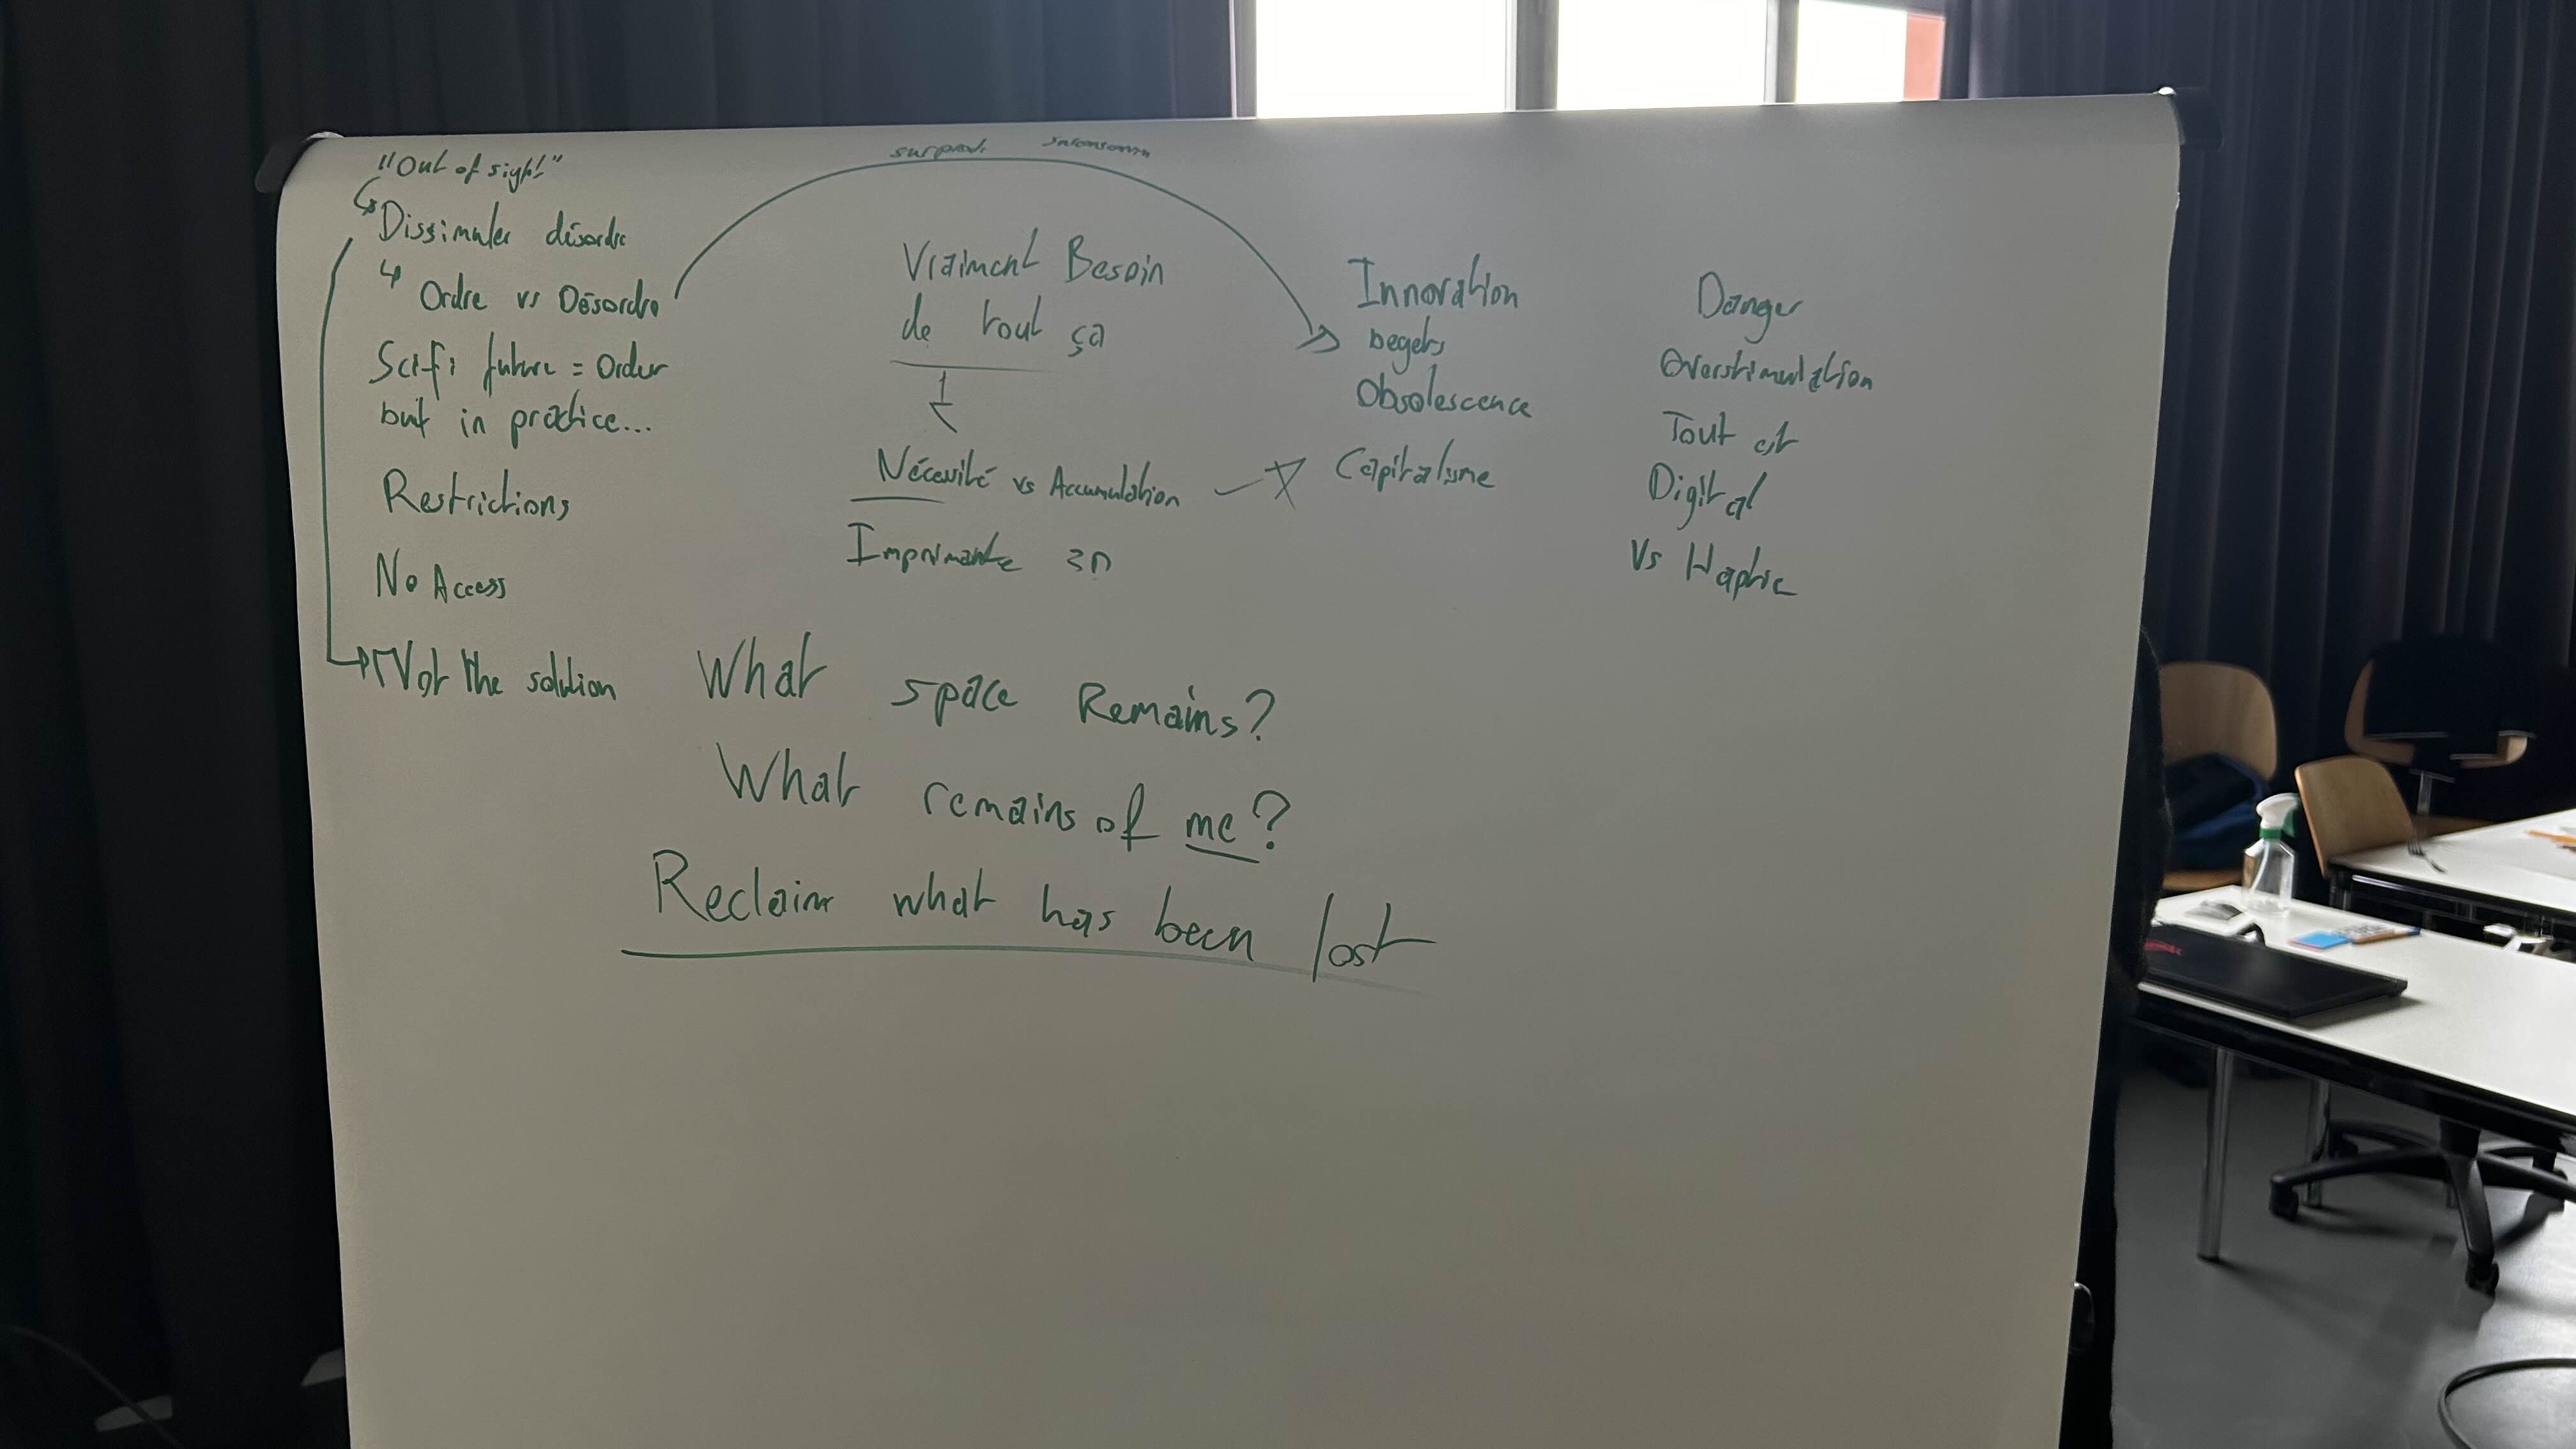 "Out of sight"
Dissimuler désordre
Ordre vs Désordre
Scifi future = Order
but in practice...
Restrictions
No Access
Not the solution
surprod.
Vraiment Besoin
de tout ça
Nécessité vs Accumulation
Imprimante 3D
Innovation
begets
Obsolescence
Capitalisme
Danger
Overstimulation
Tout est
Digital
Vs Haptic
What space Remains?
What remains of me?
Reclaim what has been lost